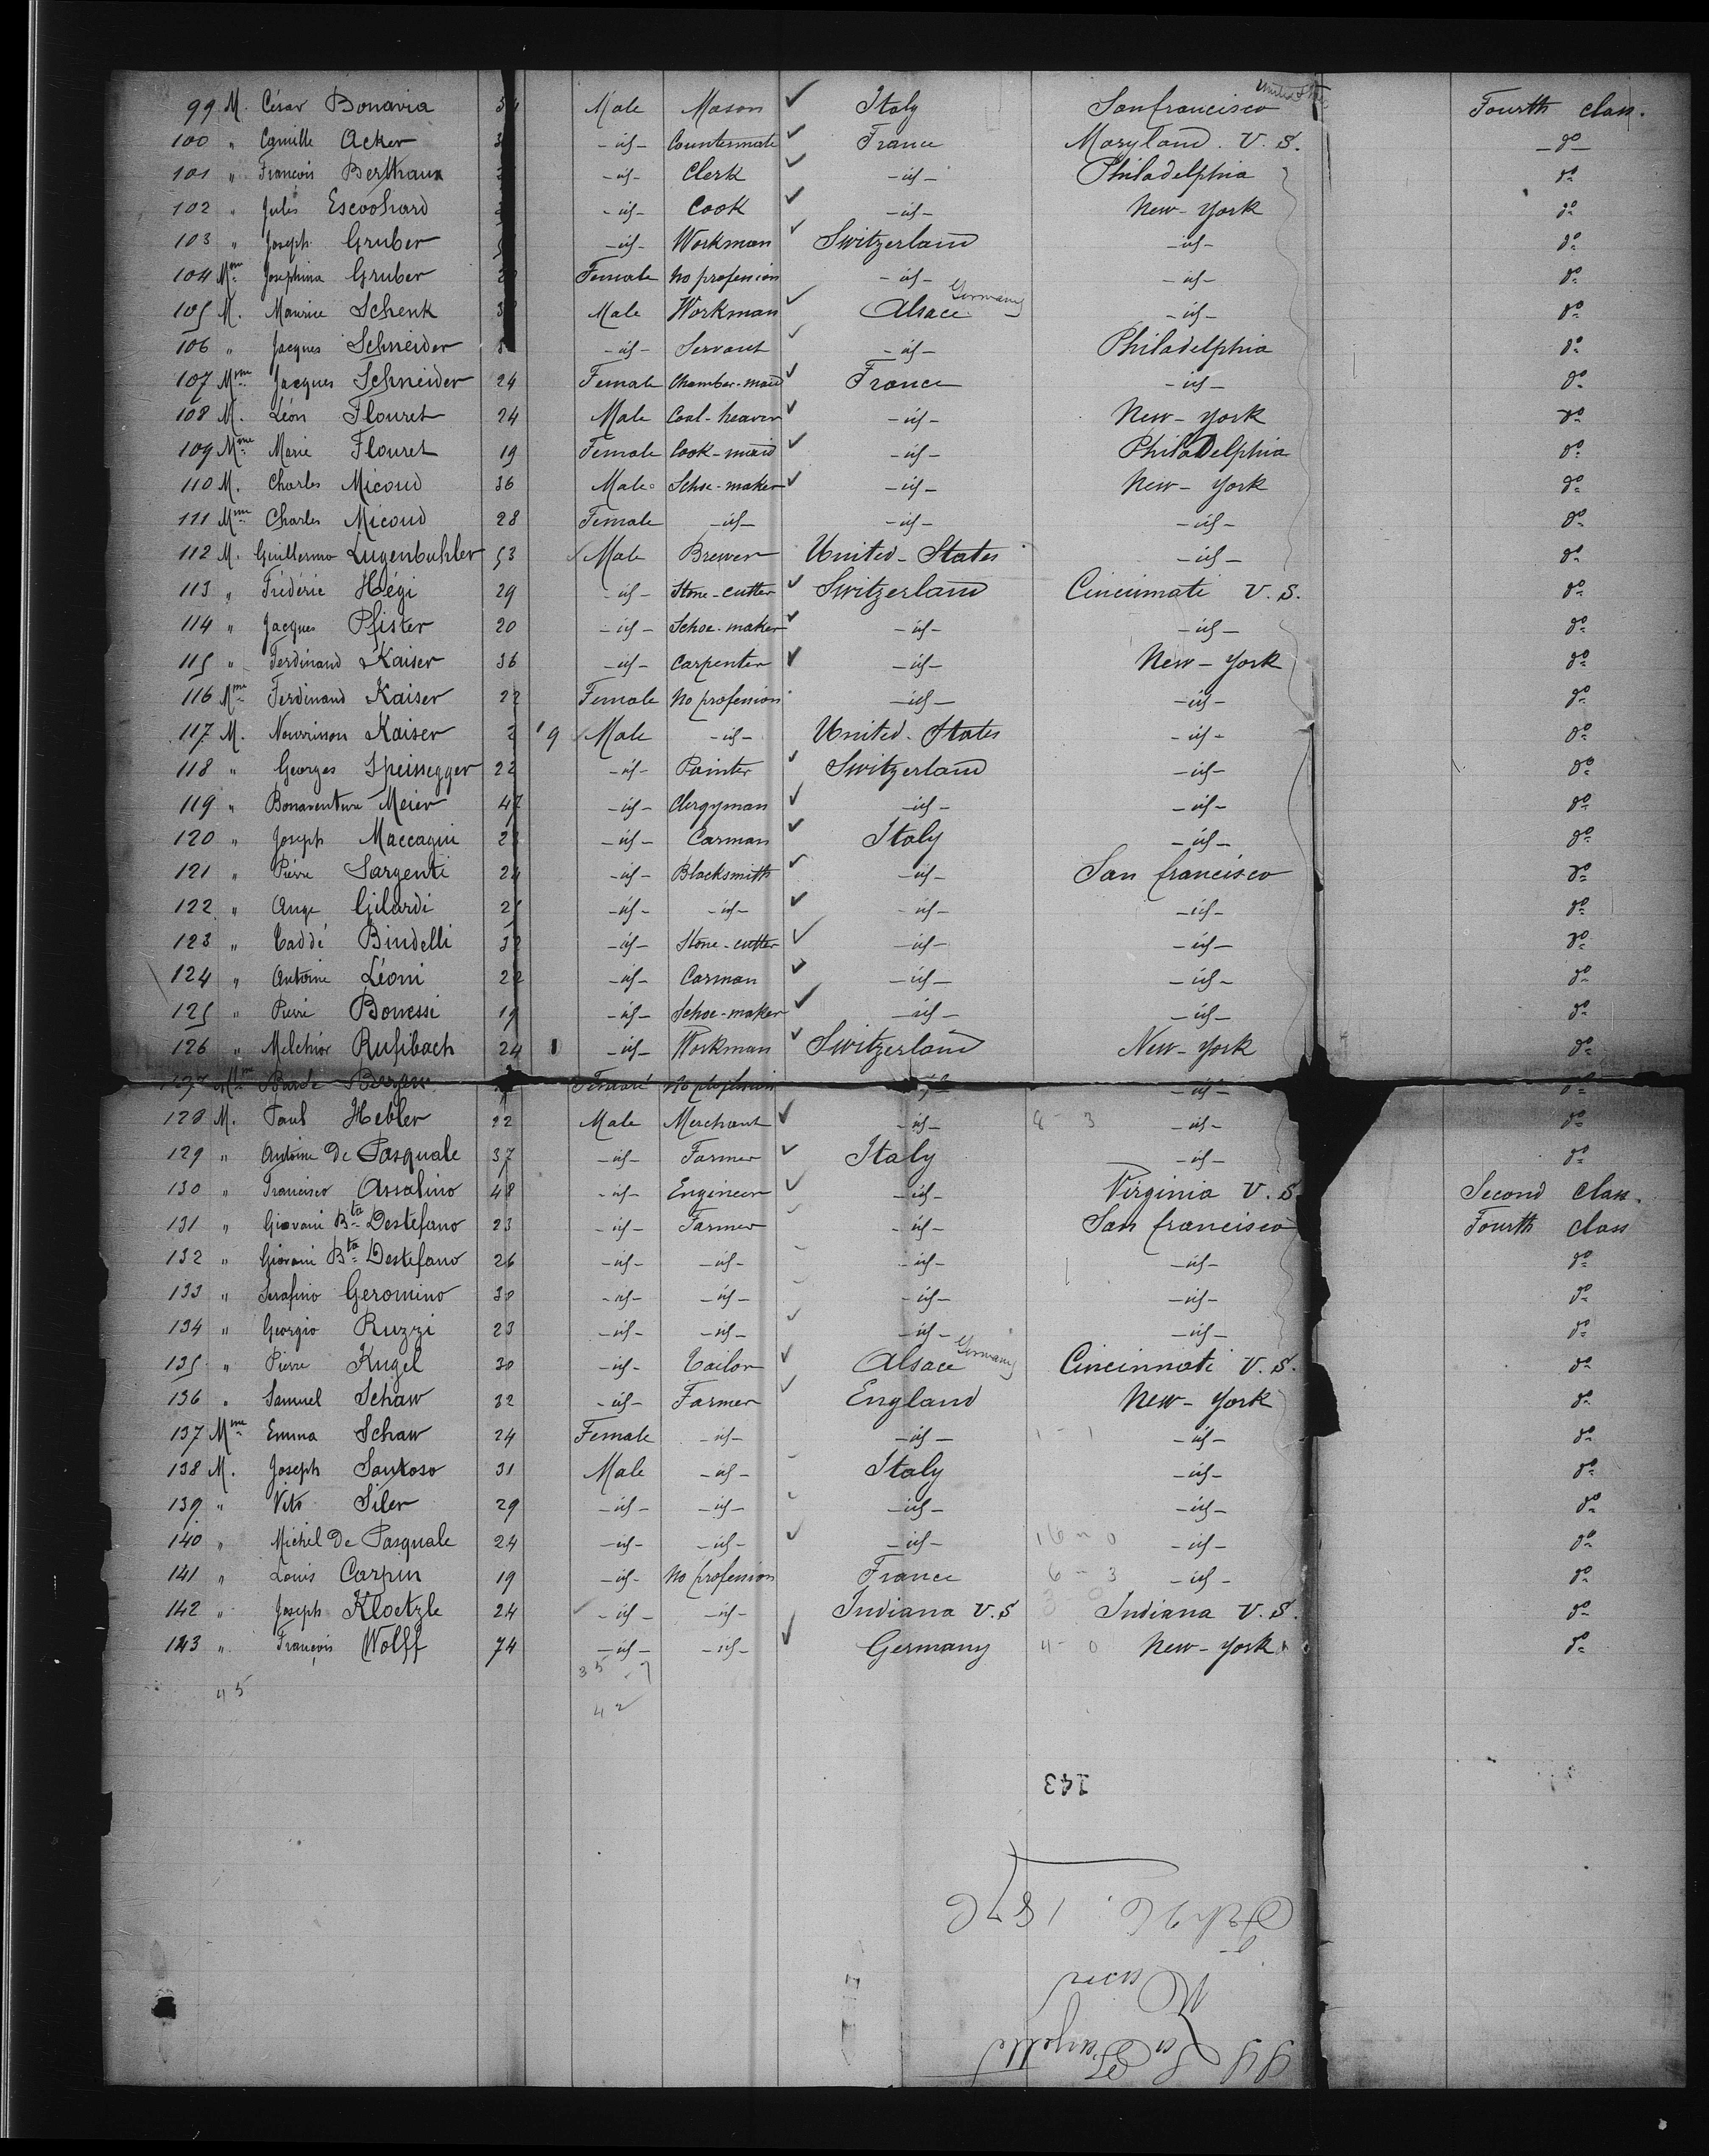 99 M. César Bonavia 34 Male Mason ✓ Italy Sanfrancisco United St Fourth class.
100 " Camille Acker 3 -id- Countermate ✓ France Maryland. U. S. -do-
101 " François Berthaux -id- Clerk ✓ -id- Philadelphia do
102 " Jules Escoohard -id- Cook ✓ -id- New-York do
103 " Joseph Gruber 5 -id- Workman ✓ Switzerland -id- do
104 Mme Josephina Gruber 2 Female No profession -id- -id- do
105 M. Maurice Schenk 3 Male Workman ✓ Alsace Germany -id- do
106 " Jacques Schneider -id- Servant ✓ -id- Philadelphia do
107 Mme Jacques Schneider 24 Female Chamber-maid ✓ France -id- do
108 M. Léon Flouret 24 Male Coal-heaver ✓ -id- New-York do
109 Mme Marie Flouret 19 Female Cook-maid ✓ -id- Philadelphia do
110 M. Charles Micoud 36 Male Schoe-maker ✓ -id- New-York do
111 Mme Charles Micoud 28 Female -id- -id- -id- do
112 M. Guillermo Lugenbuhler 53 ✓ Male Brewer United-States -id- do
113 " Frédéric Hégi 29 -id- Stone-cutter ✓ Switzerland Cincinmati U. S. do
114 " Jacques Pfister 20 -id- Schoe-maker ✓ -id- -id- do
115 " Ferdinand Kaiser 36 -id- Carpenter ✓ -id- New-York do
116 Mme Ferdinand Kaiser 22 Female No profession -id- -id- do
117 M. Nourrisson Kaiser 2 9 ✓ Male -id- United-States -id- do
118 " Georges Speissegger 22 -id- Painter ✓ Switzerland -id- do
119 " Bonaventure Meier 47 -id- Clergyman ✓ -id- -id- do
120 " Joseph Maccagni 23 -id- Carman ✓ Italy -id- do
121 " Pierre Sargenti 24 -id- Blacksmith ✓ -id- San francisco do
122 " Ange Gilardi 25 -id- -id- ✓ -id- -id- do
123 " Taddé Bindelli 32 -id- Stone-cutter ✓ -id- -id- do
124 " Antoine Léoni 22 -id- Carman ✓ -id- -id- do
125 " Pierre Bonessi 19 -id- Schoe-maker ✓ -id- -id- do
126 " Melchior Rufibach 24 -id- Workman ✓ Switzerland New-York do
127 Mme Female No profession -id- -id- do
128 M. Paul Hebler 22 Male Merchant ✓ -id- 8 - 3 -id- do
129 " Antoine De Pasquale 37 -id- Farmer ✓ Italy -id- do
130 " Francisco Assalino 48 -id- Engineer ✓ -id- Virginia U. S Second class.
131 " Giovani Bta Destefano 23 -id- Farmer ✓ -id- San francisco Fourth class
132 " Giovani Bta Destefano 26 -id- -id- -id- -id- do
133 " Serafino Geromino 30 -id- -id- -id- -id- do
134 " Georgio Ruzzi 23 -id- -id- ✓ -id- -id- do
135 " Pierre Kugel 30 -id- Tailor ✓ Alsace Germany Cincinnati U. S. do
136 " Samuel Schaw 32 -id- Farmer ✓ England New-York do
137 Mme Emma Schaw 24 Female -id- -id- 1 - 1 -id- do
138 M. Joseph Santoso 31 Male -id- Italy -id- do
139 " Vito Siler 29 -id- -id- -id- -id- do
140 " Michel De Pasquale 24 -id- -id- ✓ -id- 16 - 0 -id- do
141 " Louis Carpin 19 -id- No profession France 6 - 3 -id- do
142 " Joseph Kloetzle 24 ✓ -id- -id- Indiana U. S 3 Indiana U. S. do
143 " François Wolff 74 -id- -id- ✓ Germany 4 - 0 New-York do
35 - 7
45
42
143
SS La Fayette
Havre
Feb 26. 1876